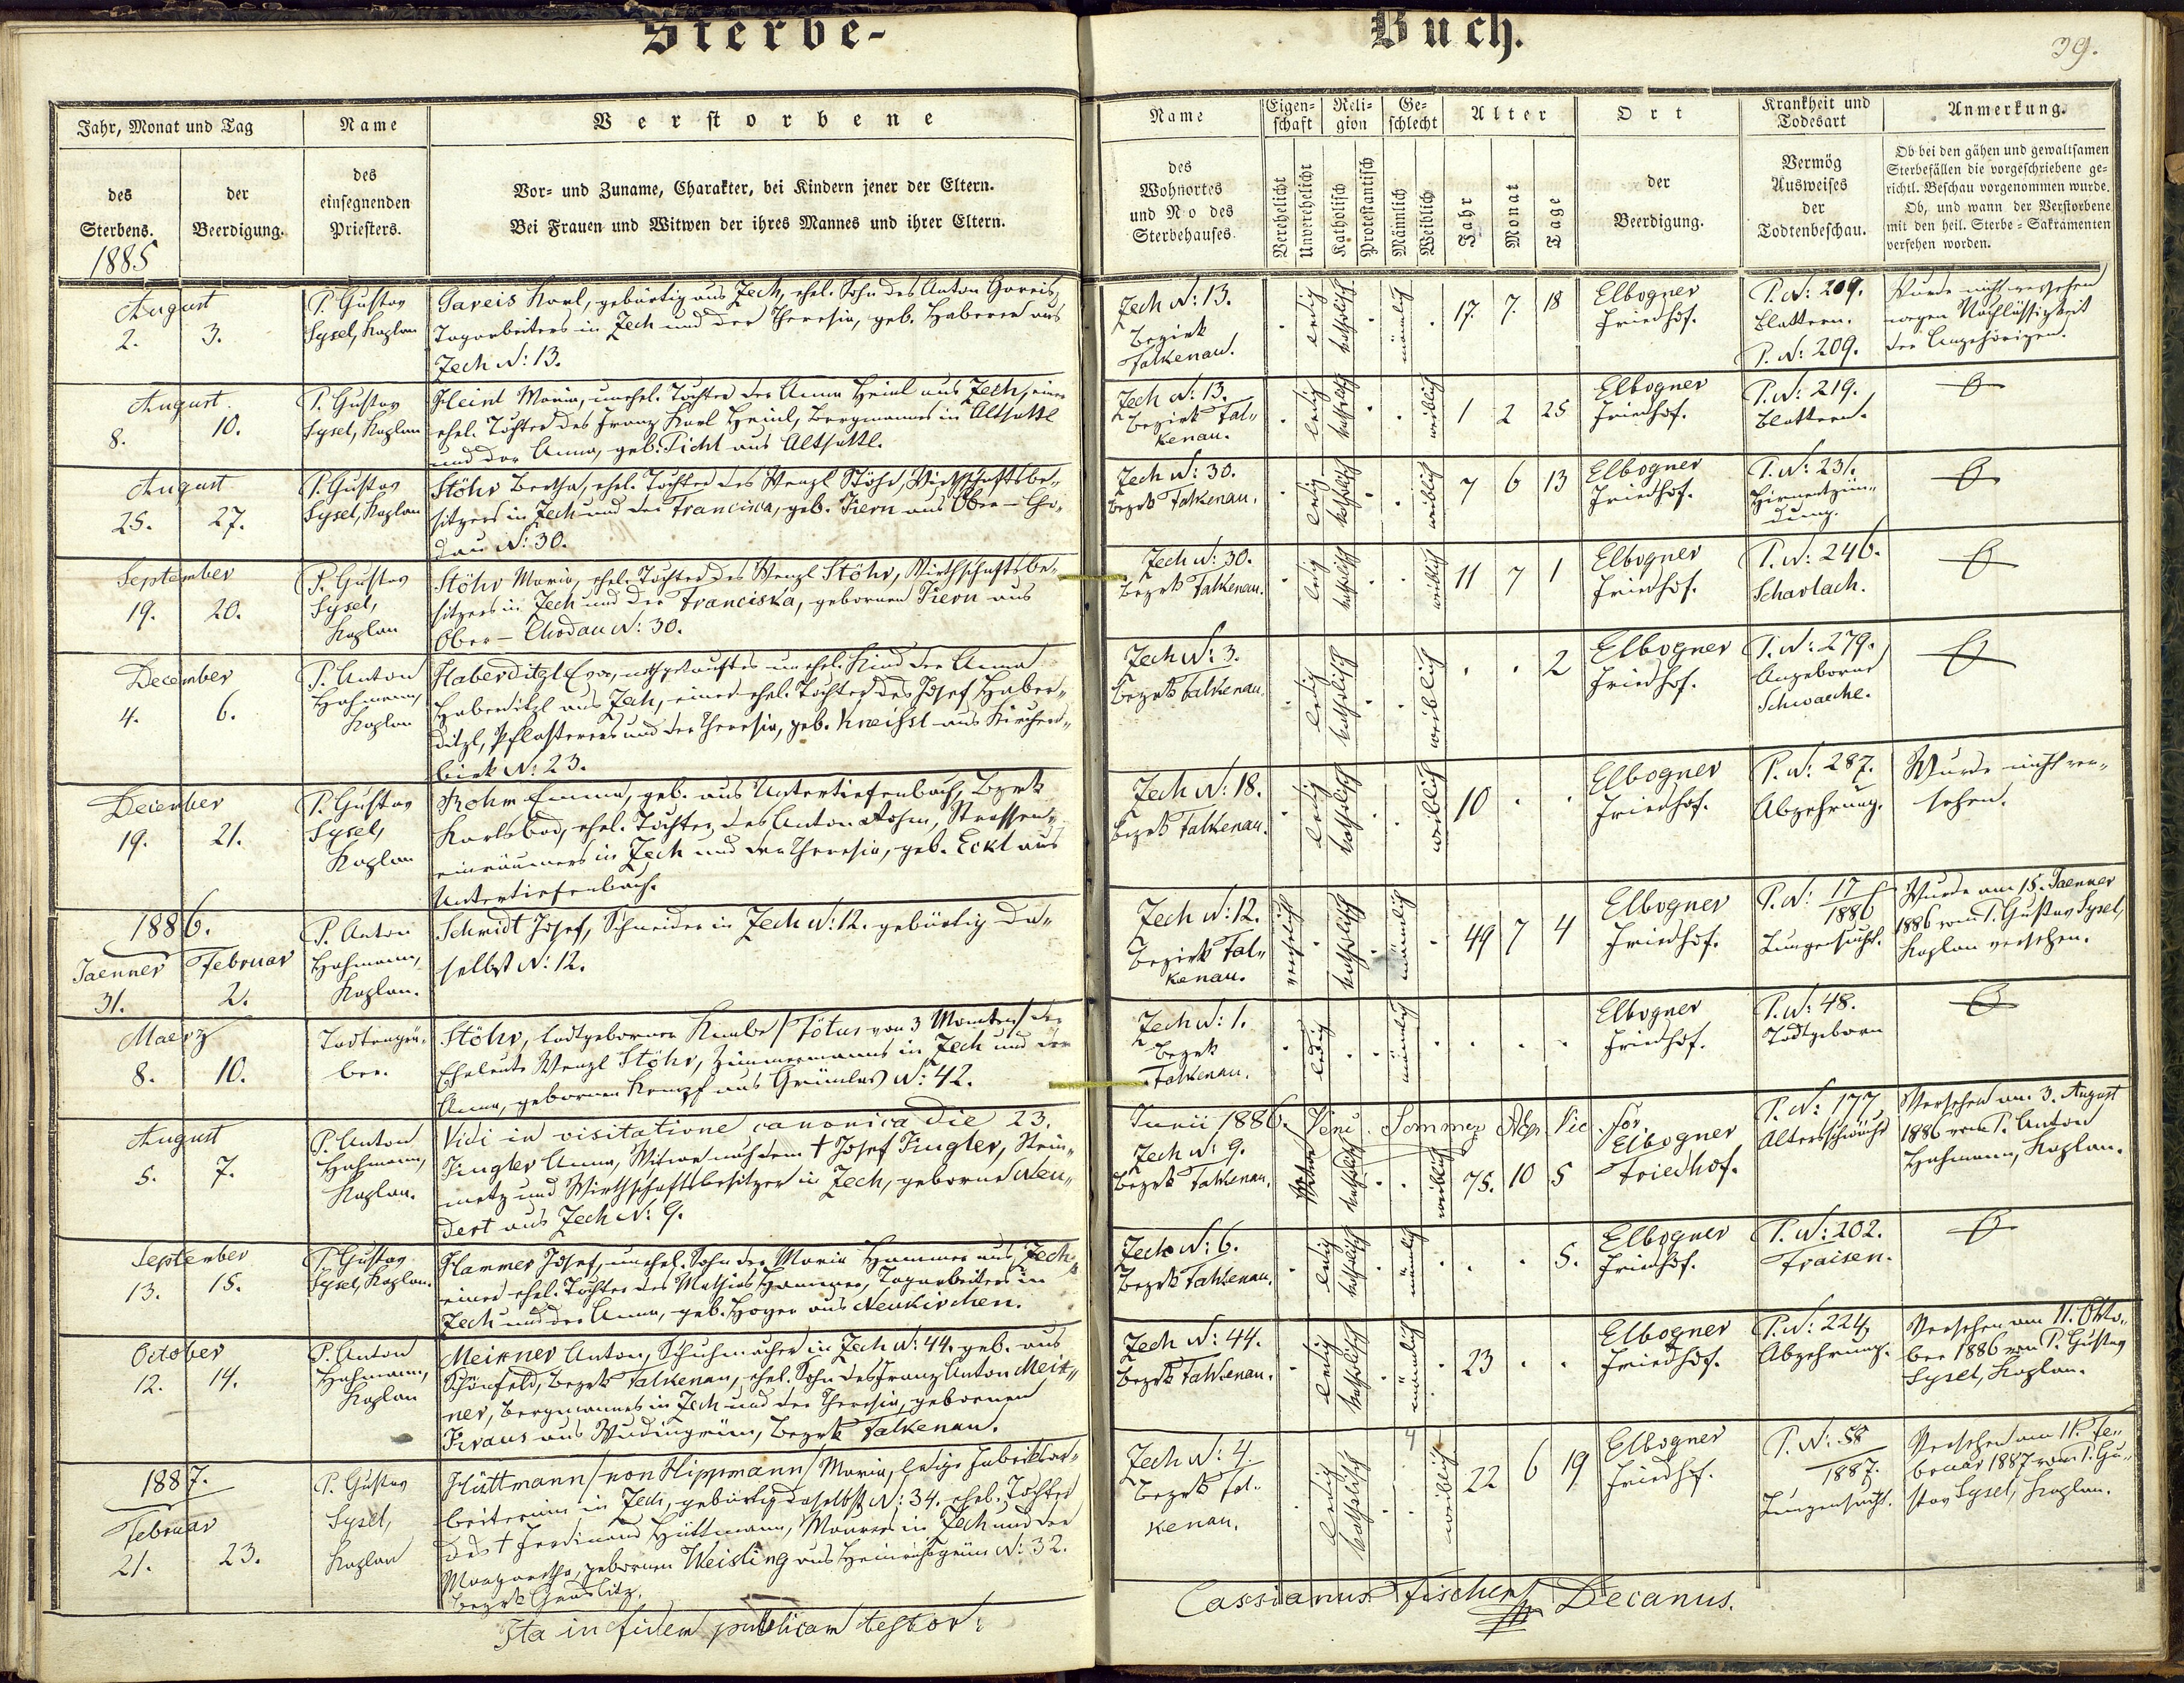 Sterbe-
Buch.
39.
Jahr, Monat und Tag
Name
Verstorbene
des Sterbens.
der Beerdigung.
des einsegnenden Priesters.
Vor- und Zuname, Charakter, bei Kindern jener der Eltern.
Bei Frauen und Witwen der ihres Mannes und ihrer Eltern.
Name
Eigenschaft
Religion
Geschlecht
Alter
Ort
Krankheit und Todesart
Anmerkung.
des Wohnortes und No des Sterbehauses.
Verehelicht
Unverehelicht
Katholisch
Protestantisch
Männlich
Weiblich
Jahr
Monat
Tage
der Beerdigung.
Vermög Ausweises der Todtenbeschau.
Ob bei den gähen und gewaltsamen
Sterbefällen die vorgeschriebene ge-
richtl. Beschau vorgenommen wurde.
Ob, und wann der Verstorbene
mit den heil. Sterbe-Sakramenten
versehen worden.
1885
August
2. 3.
P. Gustav
Sysel, Kaplan
Gareis Karl, gebürtig aus Zech, ehel. Sohn des Anton Gareis,
Tagarbeiters in Zech und der Theresia, geb. Haberer aus
Zech N: 13.
Zech N: 13.
Bezirk
Falkenau.
ledig
katholisch
männlich
17. 7. 18
Elbogner
Friedhof.
P. N: 209.
Blattern.
P. N: 209.
Wurde nicht versehen
wegen Nachlässigkeit
der Angehörigen.
August
8. 10.
P. Gustav
Sysel, Kaplan
Heinl Maria, unehel. Tochter der Anna Heinl aus Zech, einer
ehel. Tochter des Franz Karl Heinl, Bergmannes in Altsattl
und der Anna, geb. Picht aus Altsattl.
Zech N: 13.
Bezirk Fal-
kenau.
ledig
katholisch
weiblich
1 2 25
Elbogner
Friedhof.
P. N: 219.
Blattern.
August
25. 27.
P. Gustav
Sysel, Kaplan
Stöhr Bertha, ehel. Tochter des Wenzl Stöhr, Wirthschaftsbe-
sitzers in Zech und der Franciska, geb. Kern aus Ober-Cho-
dau N: 30.
Zech N: 30.
Bezrk Falkenau.
ledig
katholisch
weiblich
7 6 13
Elbogner
Friedhof.
P. N: 231.
Hirnentzün-
dung.
September
19. 20.
P. Gustav
Sysel,
Kaplan
Stöhr Maria, ehel. Tochter des Wenzl Stöhr, Wirthschaftsbe-
sitzers in Zech und der Franciska, gebornen Kern aus
Ober-Chodau N: 30.
Zech N: 30.
Bezrk Falkenau.
ledig
katholisch
weiblich
11 7 1
Elbogner
Friedhof.
P. N: 246.
Scharlach.
December
4. 6.
P. Anton
Hahmann,
Kaplan
Haberditzl Eva, nothgetauftes unehel. Kind der Anna
Haberditzl aus Zech, einer ehel. Tochter des Josef Haber-
ditzl, Pflasterers und der Theresia, geb. Kneissl aus Kirchen-
birk N: 23.
Zech N: 3.
Bezrk Falkenau.
ledig
katholisch
weiblich
2
Elbogner
Friedhof.
P. N: 279.
Angeborne
Schwaeche.
December
19. 21.
P. Gustav
Sysel,
Kaplan
Rohm Emma, geb. aus Untertiefenbach, Bezrk
Karlsbad, ehel. Tochter des Anton Rohm, Strassen-
einräumers in Zech und der Theresia, geb. Eckl aus
Untertiefenbach.
Zech N: 18.
Bezrk Falkenau.
ledig
katholisch
weiblich
10
Elbogner
Friedhof.
P. N: 287.
Abzehrung.
Wurde nicht ver-
sehen.
1886.
Jaenner Februar
31. 2.
P. Anton
Hahmann,
Kaplan.
Schmidt Josef, Schneider in Zech N: 12. gebürtig da-
selbst N: 12.
Zech N: 12.
Bezirk Fal-
kenau.
verehelicht
katholisch
männlich
49 7 4
Elbogner
Friedhof.
P. N: 17/1886
Lungensucht.
Wurde am 15. Jaenner
1886 vom P. Gustav Sysel,
Kaplan versehen.
Maerz
8. 10.
Todtengrä-
ber.
Stöhr, todtgeborner Knabe /Fötus von 3 Monaten/ der
Eheleute Wenzl Stöhr, Zimmermanns in Zech und der
Anna, gebornen Kempf aus Grünlas N: 42.
Zech N: 1.
Bezrk
Falkenau.
ledig
männlich
Elbogner
Friedhof.
P. N: 48.
Todtgeborn
Vidi in visitatione canonica die 23. Junii 1886.
August
5. 7.
P. Anton
Hahmann,
Kaplan.
Fingler Anna, Witwe nach dem † Josef Fingler, Stein-
metz und Wirthschaftsbesitzer in Zech, geborne Neu-
dert aus Zech N: 9.
Zech N: 9.
Bezrk Falkenau.
Witwe
katholisch
weiblich
75. 10 5
Elbogner
Friedhof.
P. N: 177
Altersschwäche
Versehen am 3. August
1886 vom P. Anton
Hahmann, Kaplan.
September
13. 15.
P. Gustav
Sysel, Kaplan.
Hammer Josef, unehel. Sohn der Maria Hammer aus Zech,
einer ehel. Tochter des Mathias Hammer, Tagarbeiters in
Zech und der Anna, geb. Hoyer aus Neukirchen.
Zech N: 6.
Bezrk Falkenau.
ledig
katholisch
männlich
5.
Elbogner
Friedhof.
P. N: 202.
Fraisen.
October
12. 14.
P. Anton
Hahmann,
Kaplan
Meixner Anton, Schuhmacher in Zech N: 44. geb. aus
Schönfeld, Bezrk Falkenau, ehel. Sohn des Franz Anton Meix-
ner, Bergmannes in Zech und der Theresia, gebornen
Kraus aus Wudingrün, Bezrk Falkenau.
Zech N: 44.
Bezrk Falkenau.
ledig
katholisch
männlich
23
Elbogner
Friedhof.
P. N: 224,
Abzehrung.
Versehen am 11. Okto-
ber 1886 vom P. Gustav
Sysel, Kaplan.
1887.
Februar
21. 23.
P. Gustav
Sysel,
Kaplan
Hüttmann /von Hippmann/ Maria, ledige Fabriksar-
beiterinn in Zech, gebürtig daselbst N: 34. ehel. Tochter
des † Ferdinand Hüttmann, Maurers in Zech und der
Margaretha, gebornen Weisling aus Heinrichsgrün N: 32.
Bezrk Graslitz.
Zech N: 4.
Bezrk Fal-
kenau.
ledig
katholisch
weiblich
22 6 19
Elbogner
Friedhof.
P. N: 58/1887.
Lungensucht.
Versehen am 11. Fe-
bruar 1887 vom P. Gu-
stav Sysel, Kaplan.
Ita in fidem publicam testor:
Cassianus Fischer Decanus.